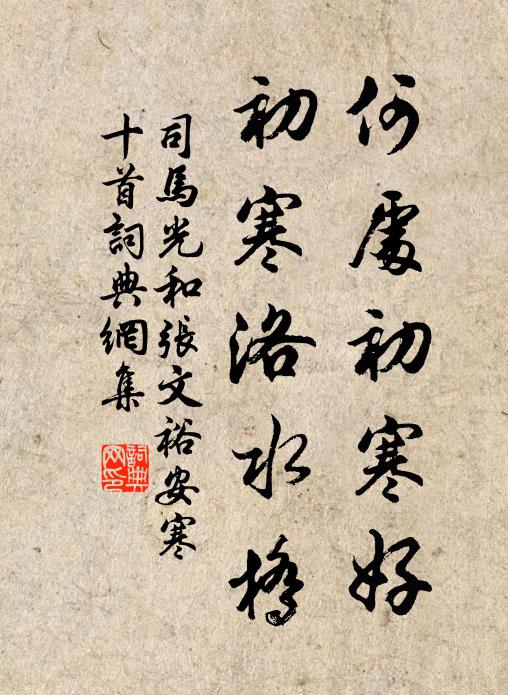 何處初寒好
初寒洛水橋
司馬光和張文裕安寒
十首詞典網集
詞典網印